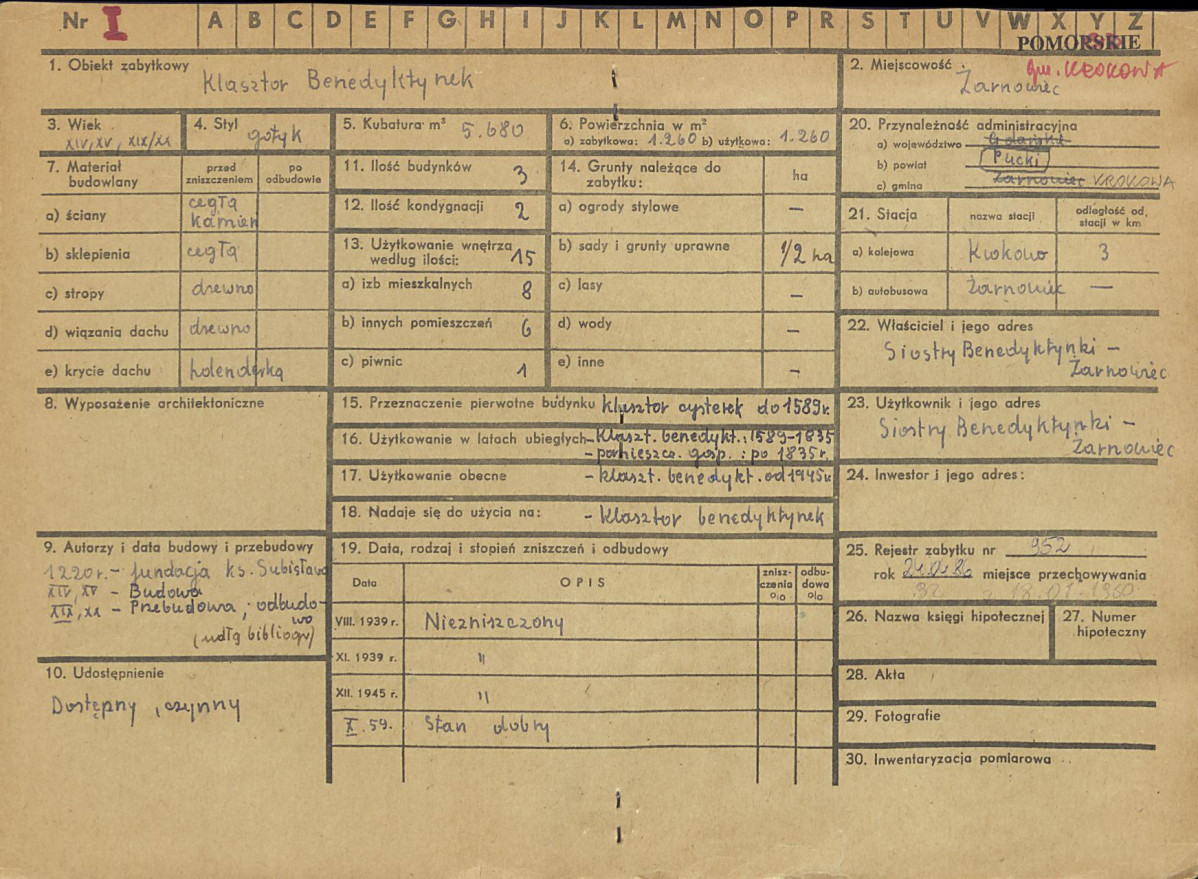 Nr I A B C D E F G H I J K L M N O P R S T U V W X Y Z
POMORSKIE
1. Obiekt zabytkowy
Klasztor Benedyktynek
2. Miejscowość
gm. KROKOWA
Żarnowiec
3. Wiek
XIV, XV, XIX/XX
4. Styl
gotyk
5. Kubatura m³ 5.680
6. Powierzchnia w m²
a) zabytkowa: 1.260 b) użytkowa: 1.260
7. Materiał budowlany
przed zniszczeniem
po odbudowie
a) ściany cegła kamień
b) sklepienia cegła
c) stropy drewno
d) wiązania dachu drewno
e) krycie dachu holenderką
8. Wyposażenie architektoniczne
9. Autorzy i data budowy i przebudowy
1220 r. - fundacja ks. Subisława
XIV, XV - Budowa
XIX, XX - Przebudowa, odbudo-
wa
(wdłg bibliogr)
10. Udostępnienie
Dostępny, czynny
11. Ilość budynków 3
12. Ilość kondygnacji 2
13. Użytkowanie wnętrza według ilości: 15
a) izb mieszkalnych 8
b) innych pomieszczeń 6
c) piwnic 1
14. Grunty należące do zabytku: ha
a) ogrody stylowe —
b) sady i grunty uprawne 1/2 ha
c) lasy —
d) wody —
e) inne —
15. Przeznaczenie pierwotne budynku klasztor cysterek do 1589 r.
16. Użytkowanie w latach ubiegłych - Klaszt. benedykt.: 1589-1835
- pomieszcz. gosp.: po 1835 r.
17. Użytkowanie obecne - klaszt. benedykt. od 1945 r.
18. Nadaje się do użycia na: - klasztor benedyktynek
19. Data, rodzaj i stopień zniszczeń i odbudowy
Data
OPIS
znisz-czenia %
odbu-dowa %
VIII. 1939 r. Niezniszczony
XI. 1939 r. "
XII. 1945 r. "
X. 59. Stan dobry
20. Przynależność administracyjna
a) województwo Gdańskie
b) powiat Pucki
c) gmina Żarnowiec KROKOWA
21. Stacja
nazwa stacji
odległość od, stacji w km
a) kolejowa Krokowo 3
b) autobusowa Żarnowiec —
22. Właściciel i jego adres
Siostry Benedyktynki -
Żarnowiec
23. Użytkownik i jego adres
Siostry Benedyktynki -
Żarnowiec
24. Inwestor i jego adres:
25. Rejestr zabytku nr 952
rok miejsce przechowywania
18.01.1960
26. Nazwa księgi hipotecznej
27. Numer hipoteczny
28. Akta
29. Fotografie
30. Inwentaryzacja pomiarowa